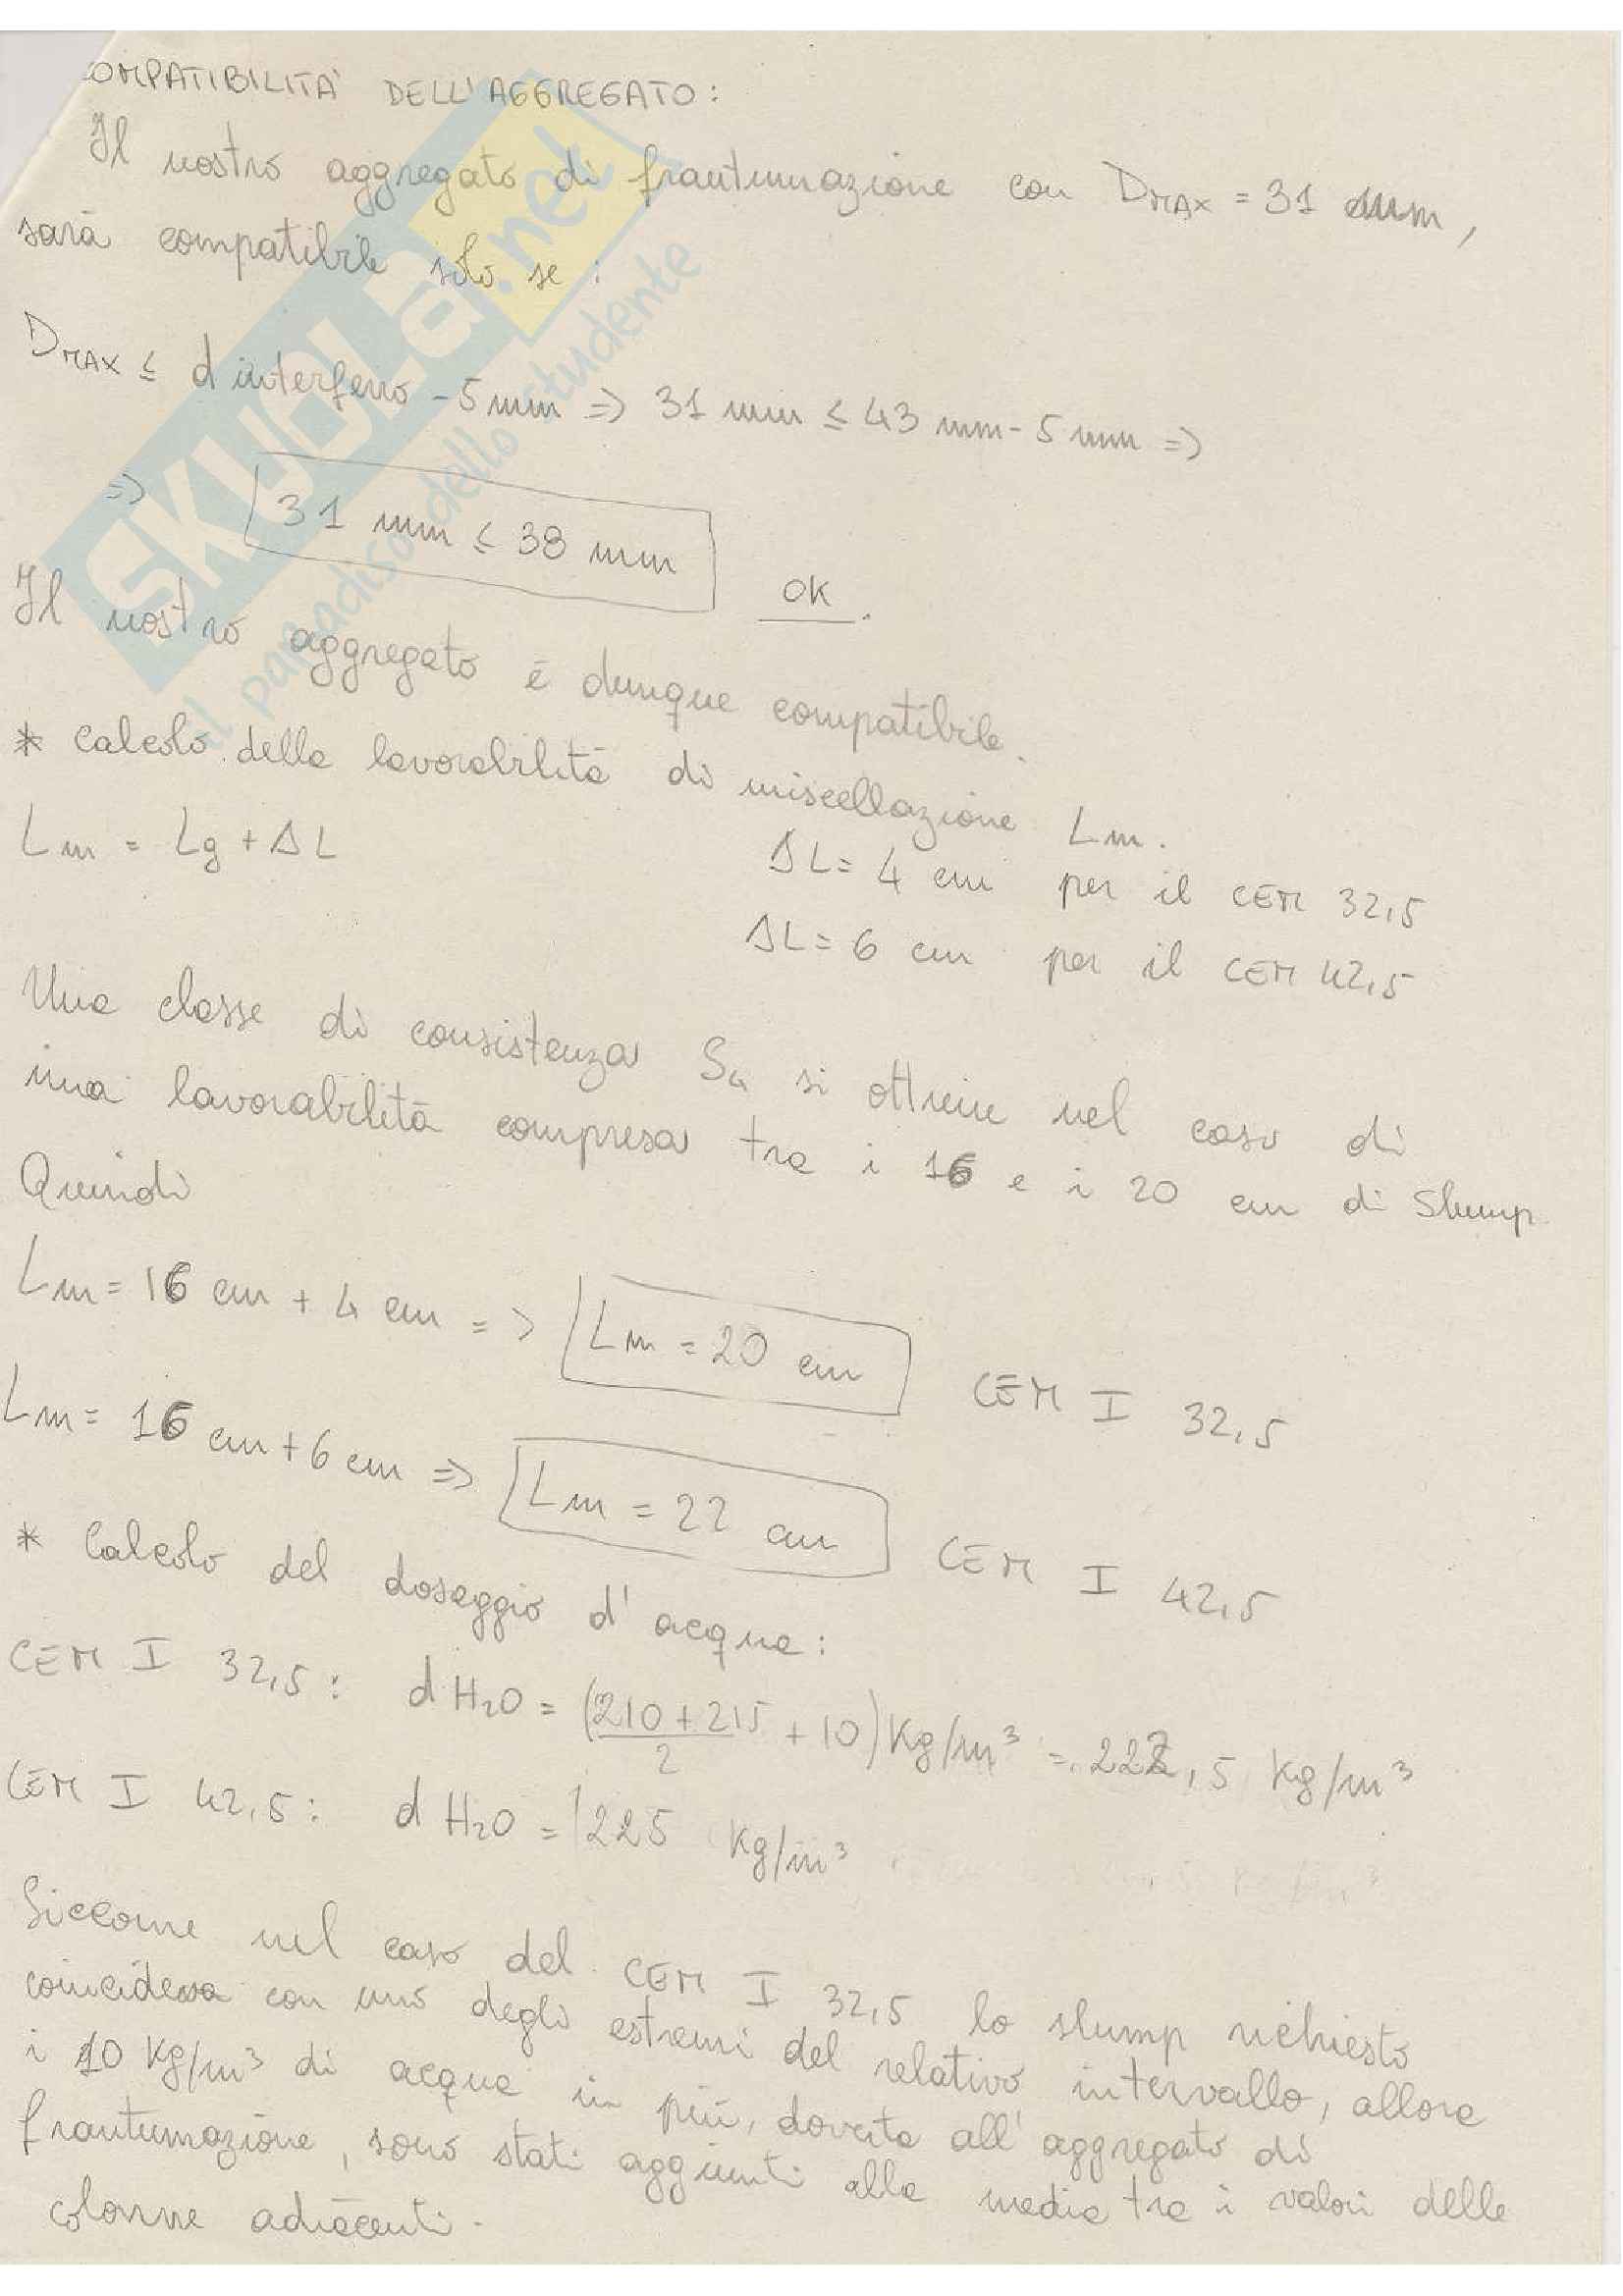 COMPATIBILITÀ DELL'AGGREGATO:
Il nostro aggregato di frantumazione con DMAX = 31 mm,
sarà compatibile solo se:
DMAX ≤ d interferro - 5 mm => 31 mm ≤ 43 mm - 5 mm =>
=> 31 mm ≤ 38 mm OK.
Il nostro aggregato è dunque compatibile.
* Calcolo della lavorabilità di miscellazione Lm.
Lm = Lg + ΔL
ΔL = 4 cm per il CEM 32,5
ΔL = 6 cm per il CEM 42,5
Una classe di consistenza S4 si ottiene nel caso di
una lavorabilità compresa tra i 16 e i 20 cm di Slump
Quindi
Lm = 16 cm + 4 cm => Lm = 20 cm CEM I 32,5
Lm = 16 cm + 6 cm => Lm = 22 cm CEM I 42,5
* Calcolo del dosaggio d'acqua:
CEM I 32,5: d H2O = (210 + 215 / 2 + 10) Kg/m³ = 222,5 Kg/m³
CEM I 42,5: d H2O = 225 Kg/m³
Siccome nel caso del CEM I 32,5 lo slump richiesto
coincideva con uno degli estremi del relativo intervallo, allora
i 10 Kg/m³ di acqua in più, dovuta all'aggregato di
frantumazione, sono stati aggiunti alla media tra i valori delle
colonne adiacenti.
SKUOLA.net
il paradiso dello studente